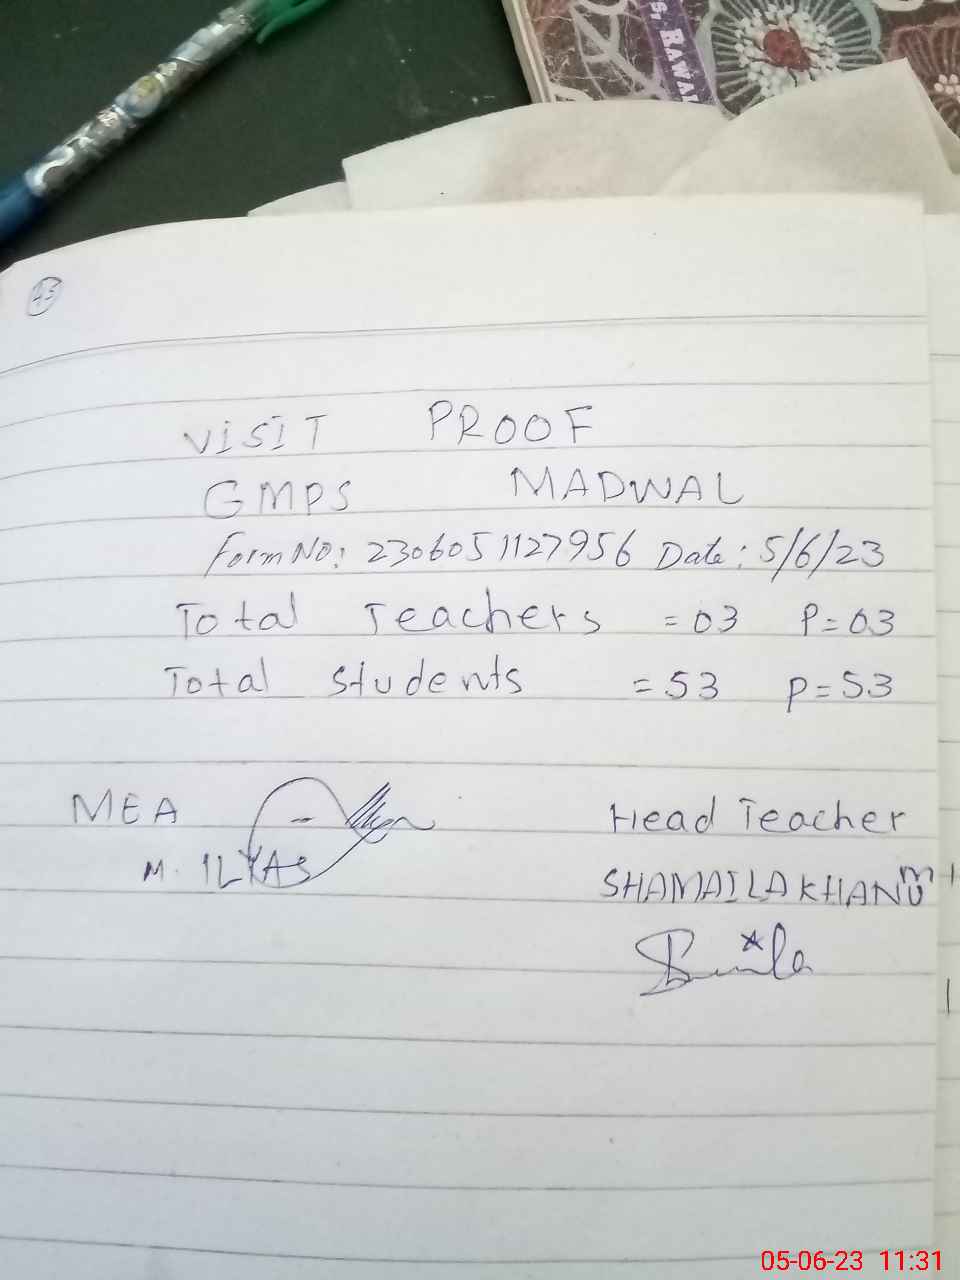 S, RAWAL
45
VISIT PROOF
GMPS MADWAL
Form NO: 2306051127956 Date: 5/6/23
Total Teachers = 03 P = 03
Total students = 53 P = 53
MEA Head Teacher
M. ILYAS SHAMAILA KHANUM
05-06-23 11:31